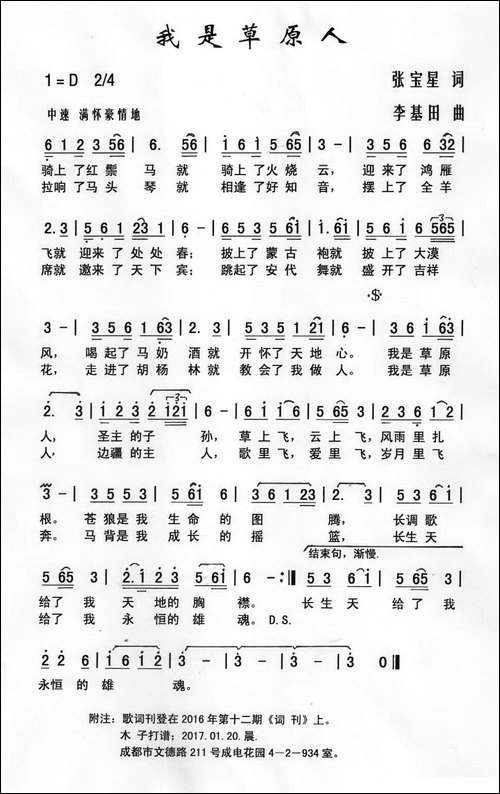 我是草原人
1=D 2/4 张宝星 词
中速 满怀豪情地 李基田 曲
6 1 2 3 56 | 6. 56 | 1 6 1 5 65 | 3 - | 3 5 6 6 32 |
骑上了红鬃 马 就 骑上了火烧 云, 迎来了 鸿雁
拉响了马头 琴 就 相逢了好知 音, 摆上了 全羊
2. 3 | 5 6 1 23 1 | 6 - | 6 5 3 5 61 | 1. 61 | 5 6 1 6 565 |
飞就 迎来了处处 春; 披上了蒙古 袍就 披上了大漠
席就 邀来了天下 宾; 跳起了安代 舞就 盛开了吉祥
3 - | 3 5 6 1 63 | 2. 3 | 5 3 5 1 21 | 6 - | 3. 5 6 53 |
风, 喝起了马奶 酒就 开怀了天地 心。 我是草原
花, 走进了胡杨 林就 教会了我做 人。 我是草原
2. 3 | 1 2 3 2 121 | 6 - | 6 1 1 6 | 5 65 3 | 2 3 6 1 2 |
人, 圣主的子 孙, 草上飞, 云上飞, 风雨里扎
人, 边疆的主 人, 歌里飞, 爱里飞, 岁月里飞
3 - | 3 5 5 3 | 5 61 6 | 3 6 1 23 | 2. 3 | 5 3 6 1 |
根。 苍狼是我 生命的图 腾, 长调歌
奔。 马背是我 成长的摇 篮, 长生天
结束句,渐慢.
5 65 3 | 2. 1 2 3 | 5 5 61 | 6 - :‖ 5 3 6 1 | 5 65 3 |
给了 我 天地的胸 襟。 长生天 给了 我
给了 我 永恒的雄 魂。D.S.
2 2 6 | 1 6 1 2 | 3 - | 3 - | 3 - | 3 0 ‖
永恒 的 雄 魂。
附注: 歌词刊登在2016年第十二期《词 刊》上。
木 子打谱: 2017.01.20.晨.
成都市文德路211号成电花园4-2-934室。